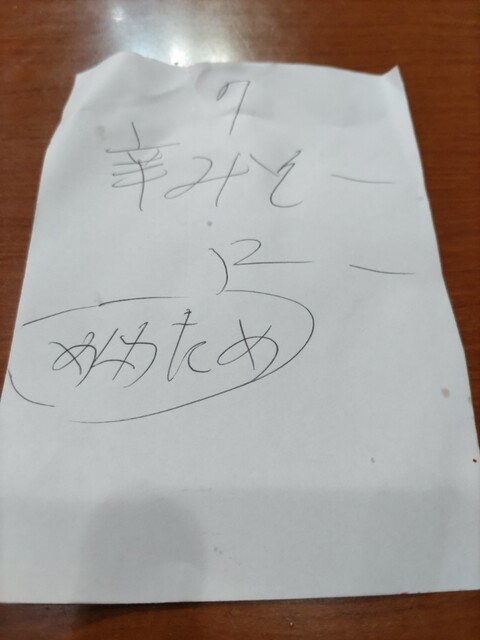 7
辛みそ 一
めんかため